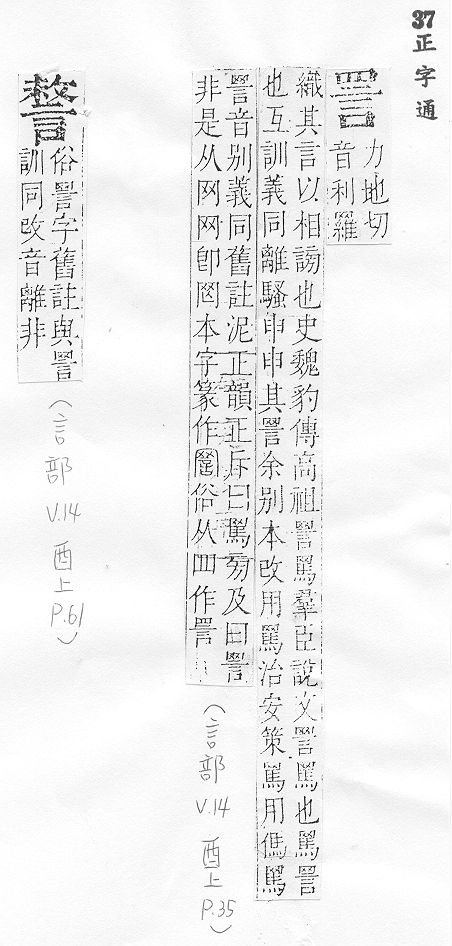 37正字通
詈
力地切
音利羅
織其言以相謗也史魏豹傳高祖詈罵羣臣說文詈罵也罵詈
也互訓義同離騷申申其詈余别本改用罵治安策罵用傌罵
詈音别義同舊註泥正韻正斥曰罵旁及曰詈
非是从网网卽罔本字篆作𦋽俗从罒作詈
（言部 V.14 酉上 P.35）
俗詈字舊註與詈
訓同改音離非
（言部 V.14 酉上 P.61）